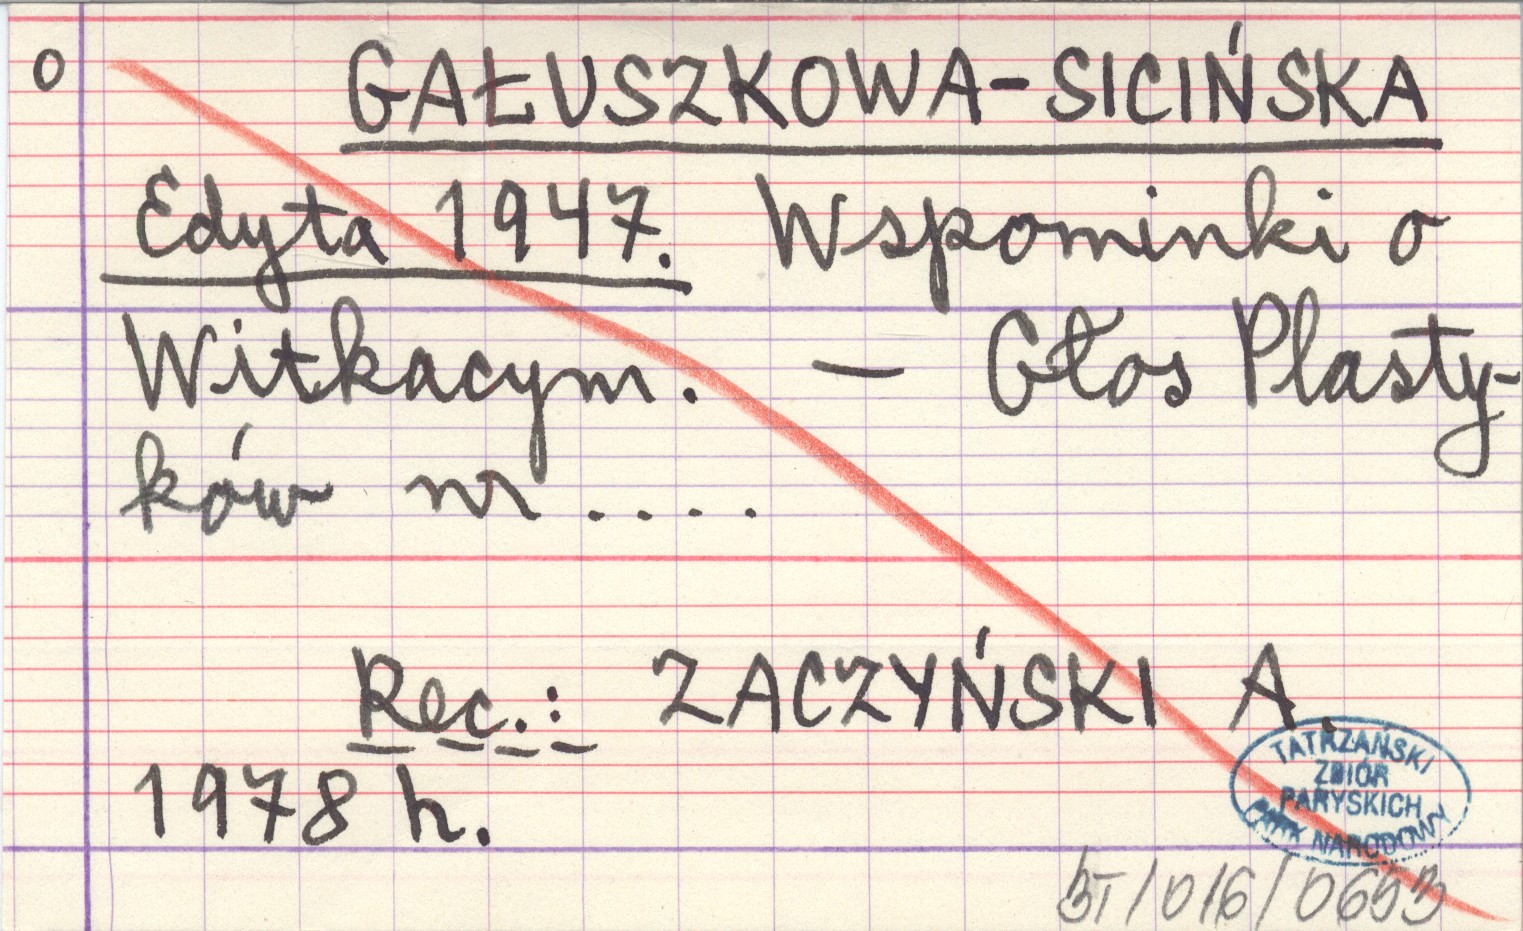 o GAŁUSZKOWA-SICIŃSKA
Edyta 1947. Wspominki o
Witkacym. — Głos Plasty-
ków nr ....
Rec.: ZACZYŃSKI A.
1978 h.
TATRZAŃSKI
ZBIÓR
PARYSKICH
PARK NARODOWY
BT/016/0653